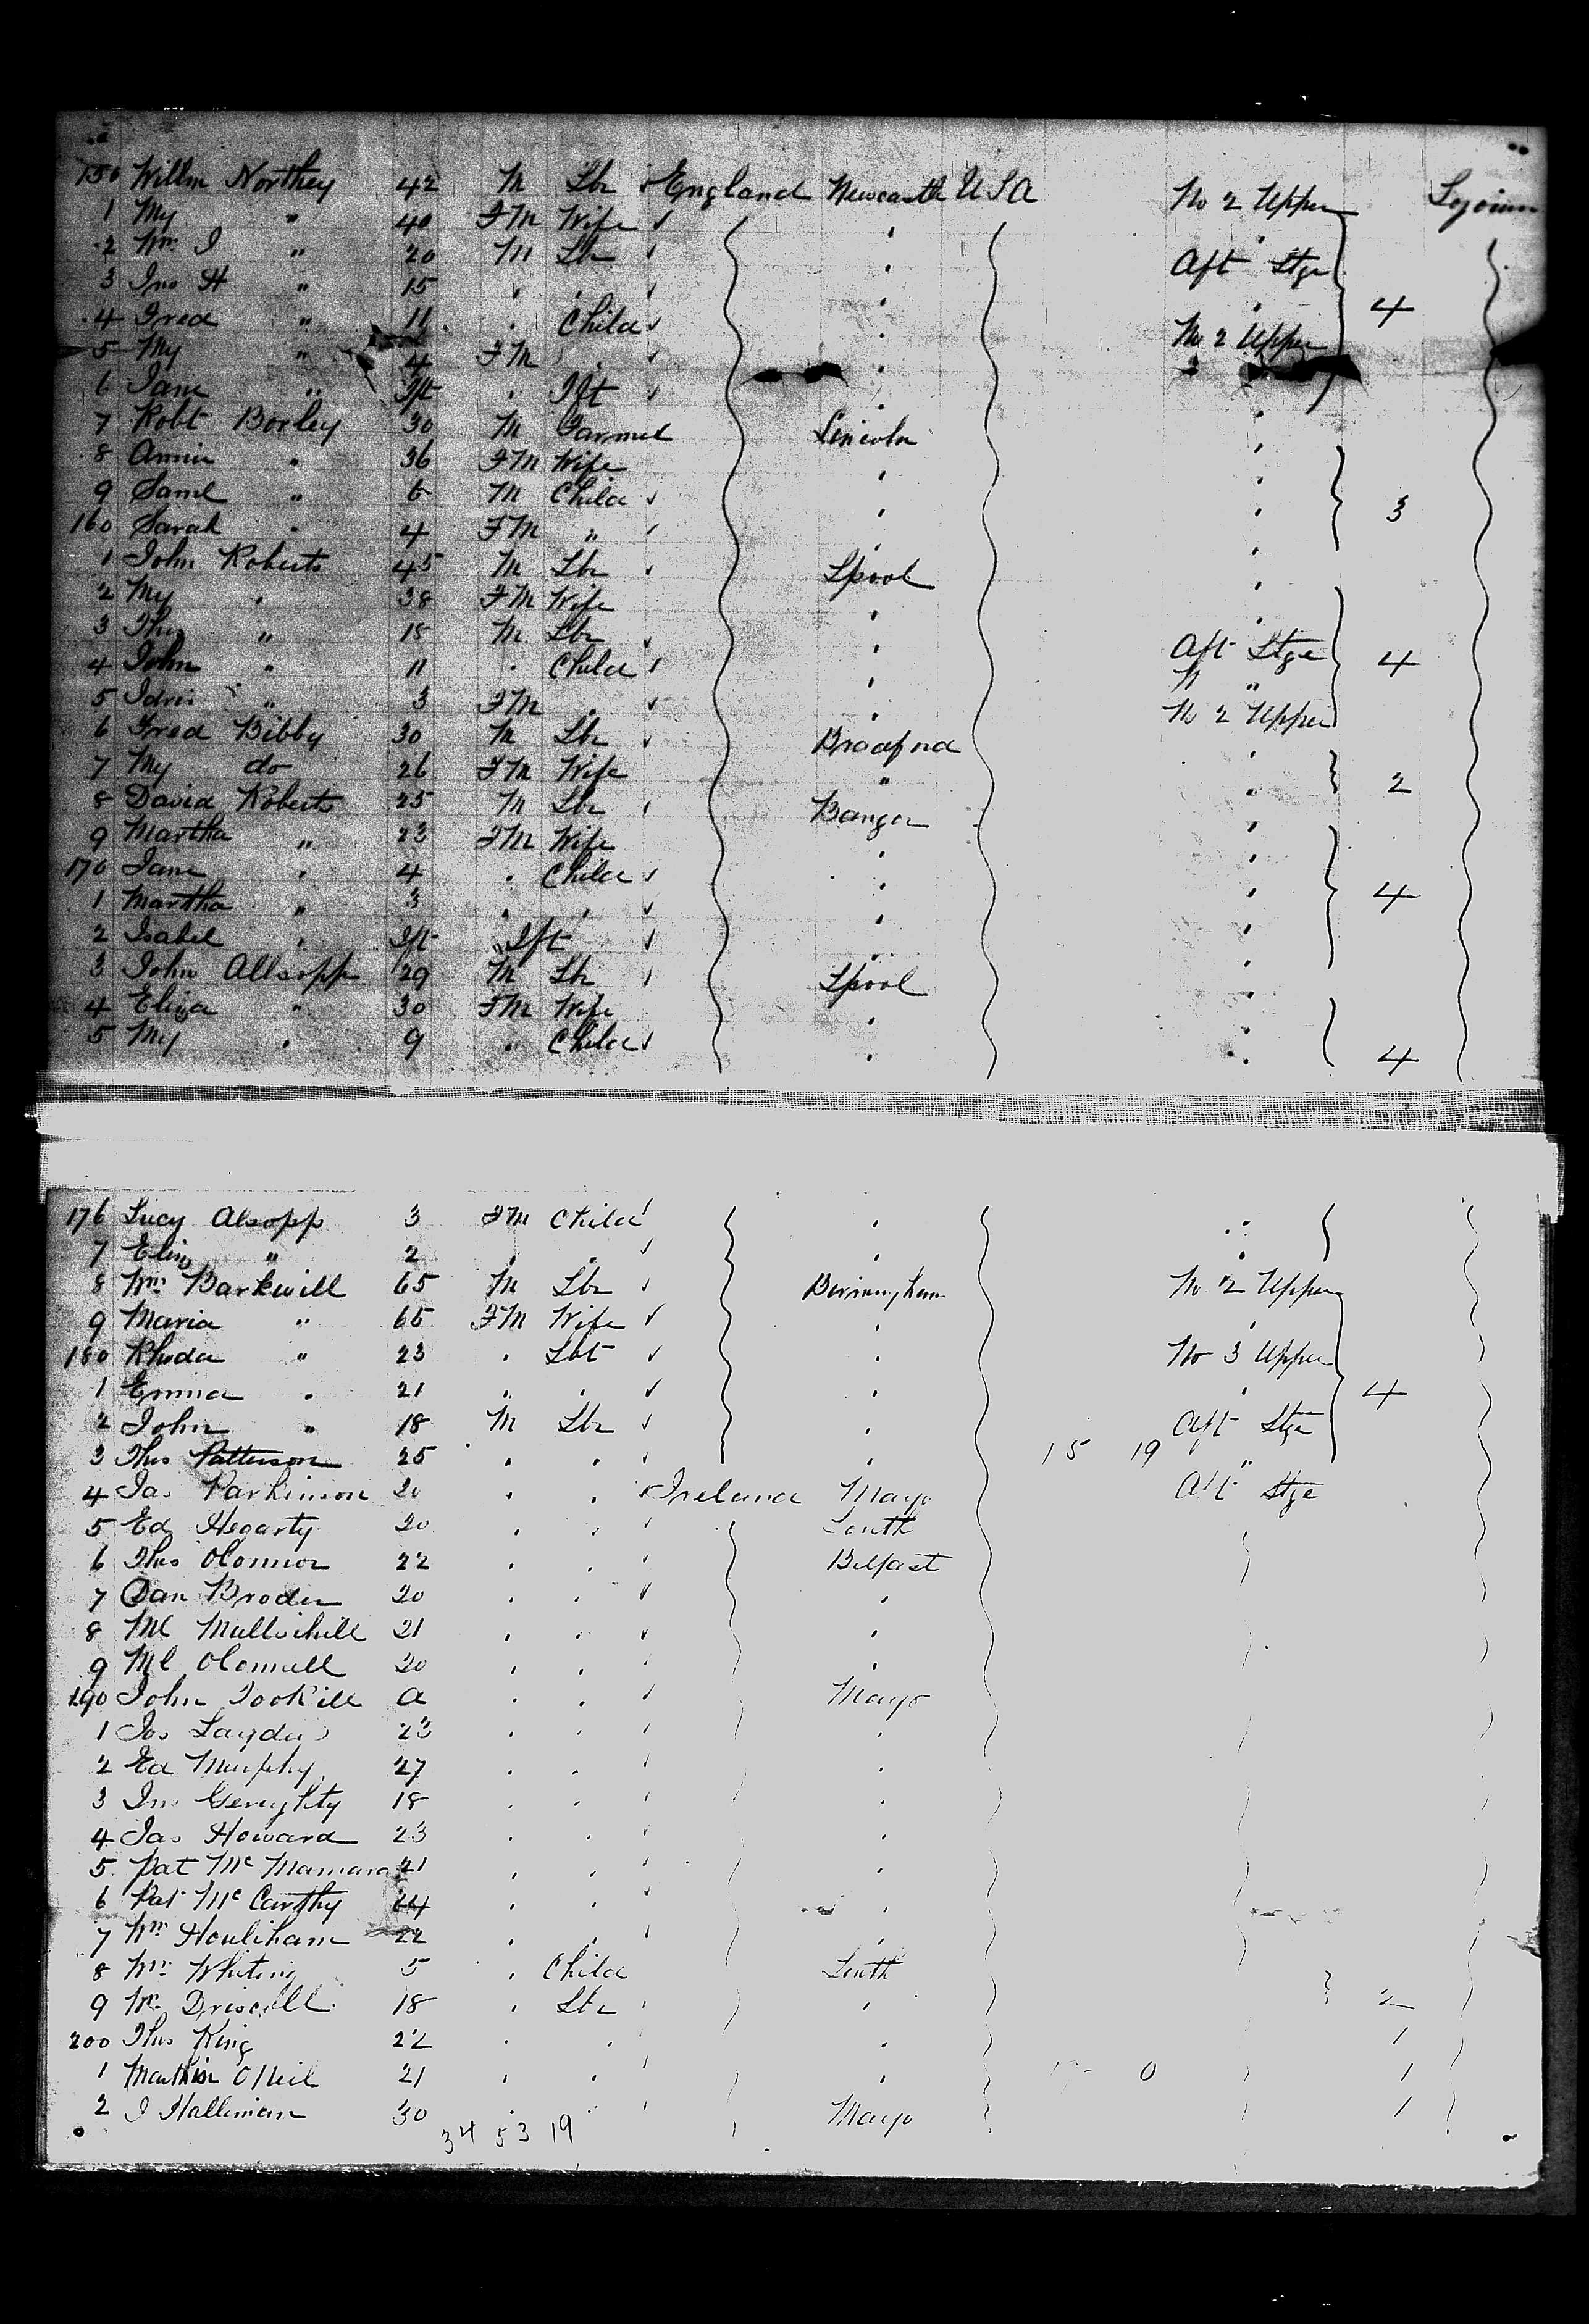 150 Willm Northey 42 M Lbr England Newcastle USA No 2 Upper
1 My " 40 FM Wife
2 Wm J " 20 M Lbr Aft Stge
3 Jno H " 15
4 Fred " 11 Child No 2 Upper 4
5 My " 4 FM
6 Jane " Ift Ift
7 Robt Borley 30 M Farmer Lincoln
8 Annie " 36 FM Wife
9 Saml " 6 M Child 3
160 Sarah " 4 FM "
1 John Roberts 45 M Lbr Lpool
2 My " 38 FM Wife
3 Thos " 18 M Lbr Aft Stge 4
4 John " 11 Child " "
5 " 3 FM No 2 Upper
6 Fred Bibby 30 M Lbr Bradford
7 My do 26 FM Wife " 2
8 David Roberts 25 M Lbr Bangor
9 Martha " 23 FM Wife
170 Jane " 4 Child
1 Martha " 3 4
2 Isabel " Ift Ift
3 John Allsopp 29 M Lbr Lpool
4 Eliza " 30 FM Wife
5 My " 9 " Child 4
176 Lucy Alsopp 3 FM Child
7 Eliz " 2
8 Wm Barkwill 65 M Lbr Birmingham No 2 Upper
9 Maria " 65 FM Wife
180 Rhoda " 23 No 3 Upper
1 Emma " 21 " 4
2 John " 18 M Lbr Aft Stge
3 Thos Patterson 25 15 19 "
4 Jas Parkinson 20 Ireland Mayo Aft Stge
5 Ed Hegarty 20 Louth
6 Thos OConnor 22 Belfast
7 Dan Broder 20
8 Ml 21
9 Ml OConnell 20
190 John a Mayo
1 Jos 23
2 Ed Murphy 27
3 Jno Geraghty 18
4 Jas Howard 23
5 Pat McMamara 21
6 Pat McCarthy 24
7 Wm Houlihane 22
8 Wm Whiting 5 Child Louth
9 Wm Driscoll 18 Lbr 2
200 Thos King 22 1
1 ONeil 21 0 1
2 J Halliman 30 Mayo 1
34 53 19